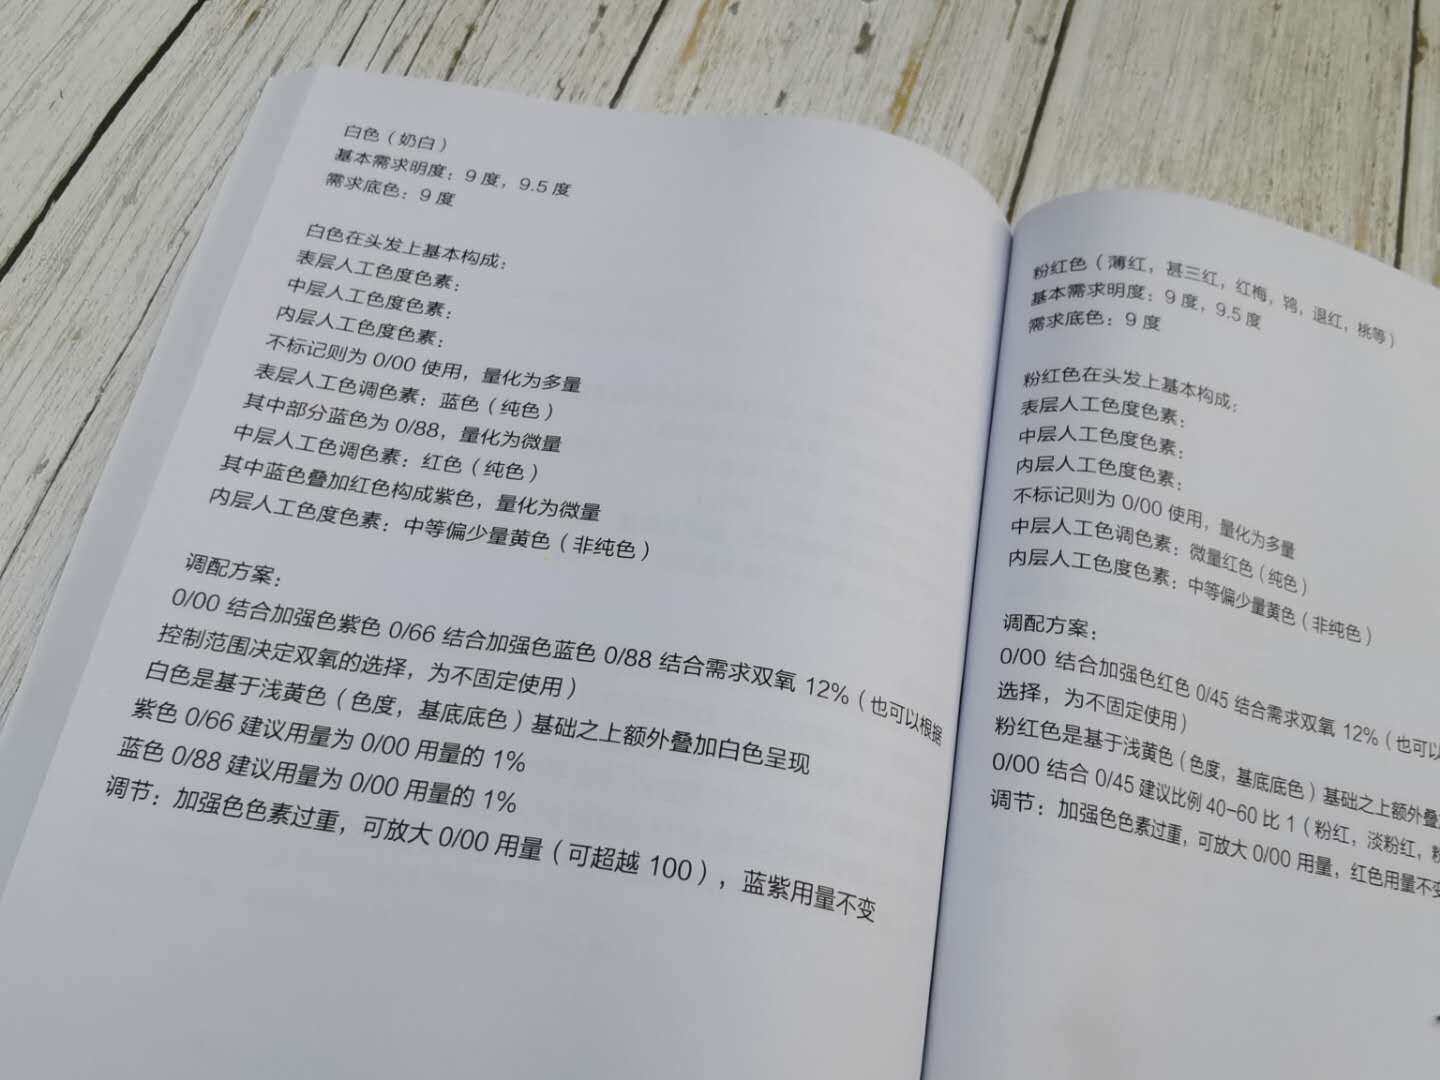 白色（奶白）
基本需求明度：9 度，9.5 度
需求底色：9 度
白色在头发上基本构成：
表层人工色度色素：
中层人工色度色素：
内层人工色度色素：
不标记则为 0/00 使用，量化为多量
表层人工色调色素：蓝色（纯色）
其中部分蓝色为 0/88，量化为微量
中层人工色调色素：红色（纯色）
其中蓝色叠加红色构成紫色，量化为微量
内层人工色度色素：中等偏少量黄色（非纯色）
调配方案：
0/00 结合加强色紫色 0/66 结合加强色蓝色 0/88 结合需求双氧 12%（也可以根据
控制范围决定双氧的选择，为不固定使用）
白色是基于浅黄色（色度，基底底色）基础之上额外叠加白色呈现
紫色 0/66 建议用量为 0/00 用量的 1%
蓝色 0/88 建议用量为 0/00 用量的 1%
调节：加强色色素过重，可放大 0/00 用量（可超越 100），蓝紫用量不变
粉红色（薄红，甚三红，红梅，鸨，退红，桃等）
基本需求明度：9 度，9.5 度
需求底色：9 度
粉红色在头发上基本构成：
表层人工色度色素：
中层人工色度色素：
内层人工色度色素：
不标记则为 0/00 使用，量化为多量
中层人工色调色素：微量红色（纯色）
内层人工色度色素：中等偏少量黄色（非纯色）
调配方案：
0/00 结合加强色红色 0/45 结合需求双氧 12%（也可以
选择，为不固定使用）
粉红色是基于浅黄色（色度，基底底色）基础之上额外叠
0/00 结合 0/45 建议比例 40-60 比 1（粉红，淡粉红，
调节：加强色色素过重，可放大 0/00 用量，红色用量不变